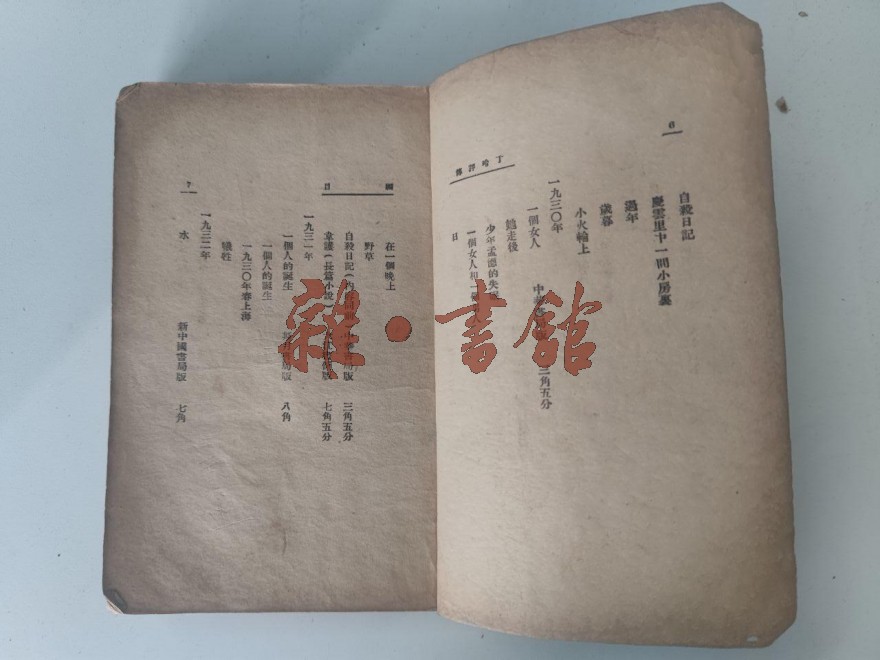 6
丁玲評傳
自殺日記
慶雲里中一間小房裏
過年
歲暮
小火輪上
一九三〇年
一個女人 三角五分
她走後
少年孟德的失
一個女人和一
日
目
在一個晚上
野草
自殺日記 書局版 三角五分
韋護(長篇小說) 七角五分
一九三一年
一個人的誕生 書局版 八角
一個人的誕生
一九三〇年春上海
犧牲
一九三二年
水 新中國書局版 七角
7
雜·書館